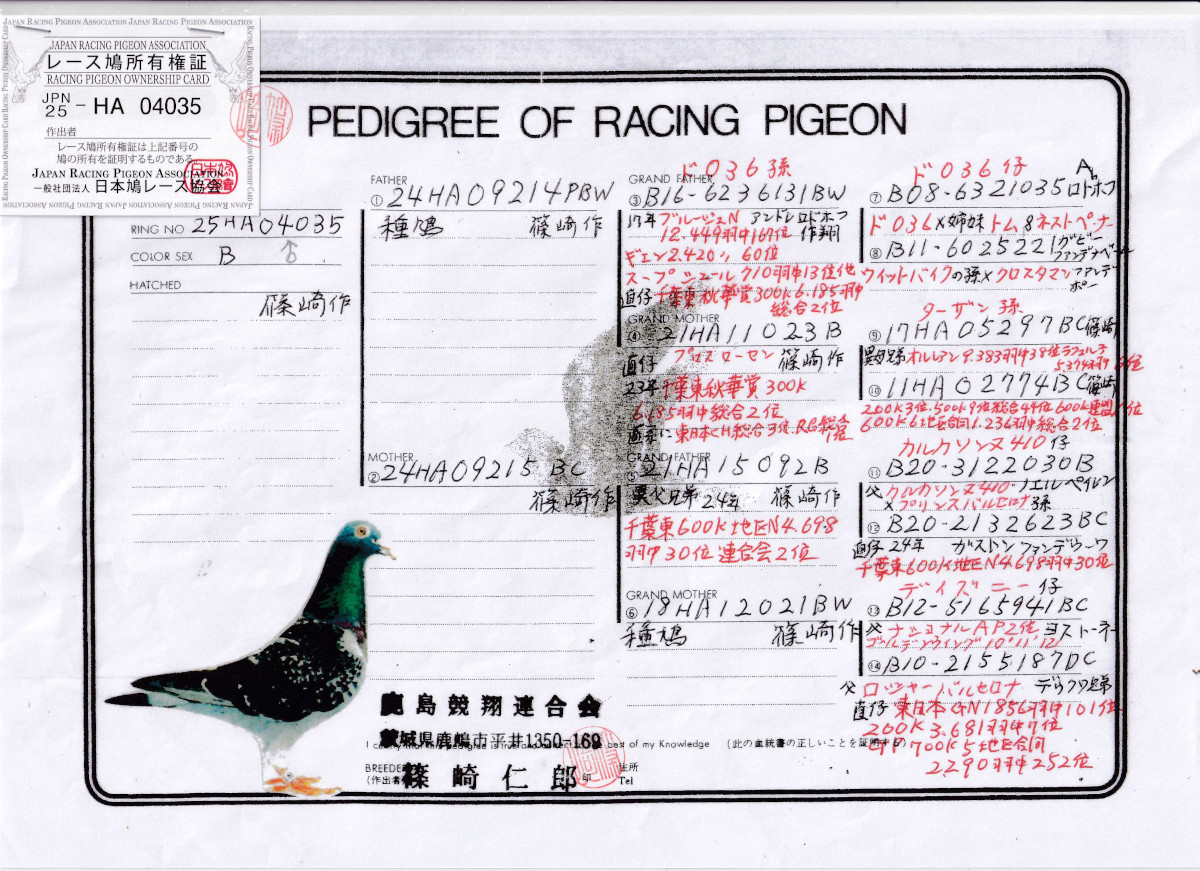 JAPAN RACING PIGEON ASSOCIATION JAPAN RACING PIGEON ASSOCIATION
JAPAN RACING PIGEON ASSOCIATION
レース鳩所有権証
RACING PIGEON OWNERSHIP CARD
JPN
25 - HA 04035
作出者
レース鳩所有権証は上記番号の
鳩の所有を証明するものである
JAPAN RACING PIGEON ASSOCIATION
一般社団法人 日本鳩レース協会
PEDIGREE OF RACING PIGEON
RING NO 25HA04035
COLOR SEX B
HATCHED
篠崎作
FATHER
① 24HA09214PBW
種鳩 篠崎作
MOTHER
② 24HA09215 BC
篠崎作
ド036孫
GRAND FATHER
③ B16-6236131BW
17年ブルージュN アンドレロドホフ
12.449羽中167位 作翔
ギエン2.420〃 60位
スープ 710羽中13位他
直仔千葉東秋華賞300K6.185羽中
総合2位
GRAND MOTHER
④ 21HA11023B
直仔 篠崎作
23年千葉東秋華賞300K
6.185羽中総合2位
東日本CH総合3位.RG総合
GRAND FATHER
⑤ 21HA15092B
異父兄弟 24年 篠崎作
千葉東600K地区N4.698
羽中30位 連合会2位
GRAND MOTHER
⑥ 18HA12021BW
種鳩 篠崎作
ド036仔
⑦ B08-6321035 ロドホフ
ド036×姉妹トム&ネストペーナー
⑧ B11-6025221 ガビー
ファンデナベール
ウィットバイクの孫×クロスタマン ファンデ
ポー
ターザン孫
⑨ 17HA05297BC 篠崎
異母兄弟オルレアン9.383羽中38位
⑩ 11HA02774BC 篠崎
200K3位.500K9位総合49位600K連盟
600K6地区合同1.236羽中総合2位
カルカソンヌ410仔
⑪ B20-3122030B
父カルカソンヌ410 ノエルペイレン
×プリンスバルセロナ孫
⑫ B20-2132623BC
直仔24年 ガストンファンデワーワ
千葉東600K地区N4.698羽中30位
ディズニー仔
⑬ B12-5165941BC
父ナショナルAP2位 ヨストーネ
ゴールデンウィング'10'11'12
⑭ B10-2155187DC
父ロジャーバルセロナ デウフツ兄弟
直仔東日本GN1856羽中101位
200K3.681羽中7位
700K5地区合同
2290羽中252位
鹿島競翔連合会
茨城県鹿嶋市平井1350-169
I certify that this pedigree is true and best of my Knowledge (此の血統書の正しいことを証明する)
BREEDER
(作出者) 篠崎仁郎 印
住所
Tel